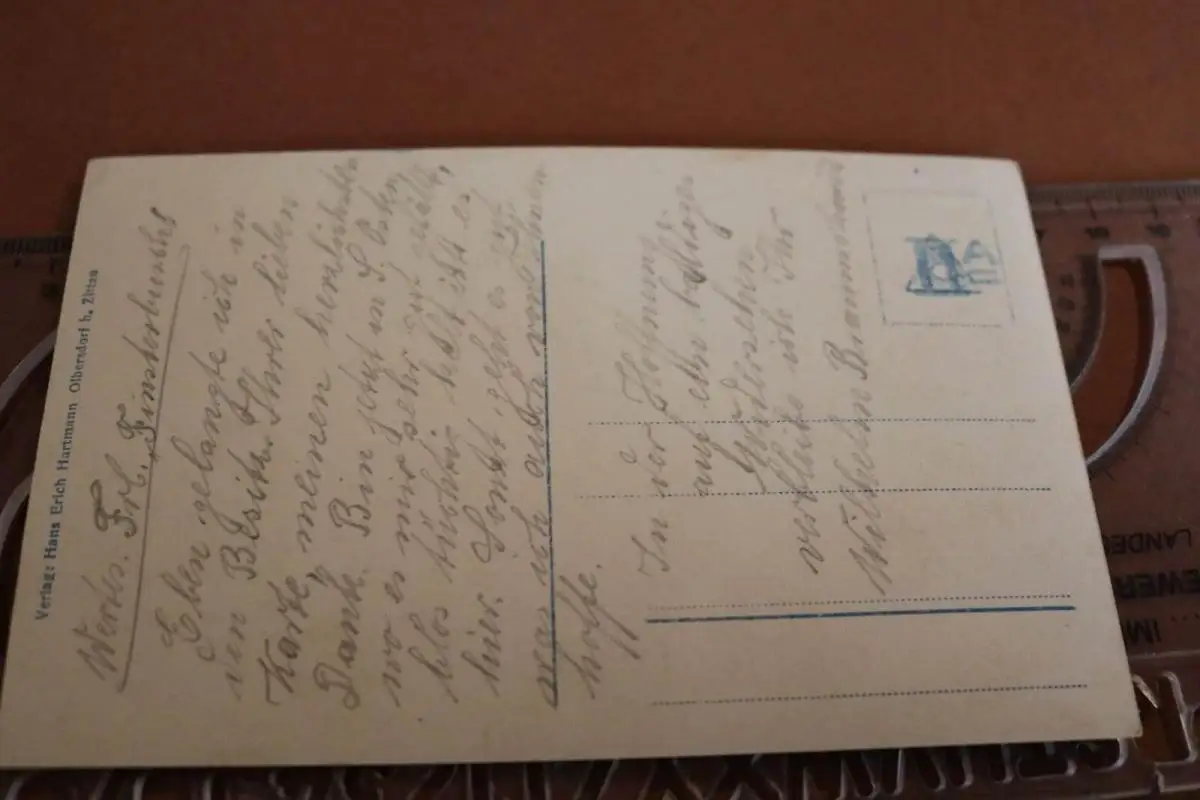 Verlag: Hans Erich Hartmann Olbersdorf b. Zittau
Wertes. Frl. Finsterbusch!
Eben gelangte ich in
den Besitz Ihrer lieben
Karte, meinen herzlichsten
Dank. Bin jetzt in
wo es mir sehr gut gefällt,
blos trübe ist es
hier. Sonst geht es
was ich auch von Ihnen
hoffe.
In der Hoffnung
auf ein baldiges
Wiedersehen
verbleibe ich Ihr
Wilhelm
LANDES
IM